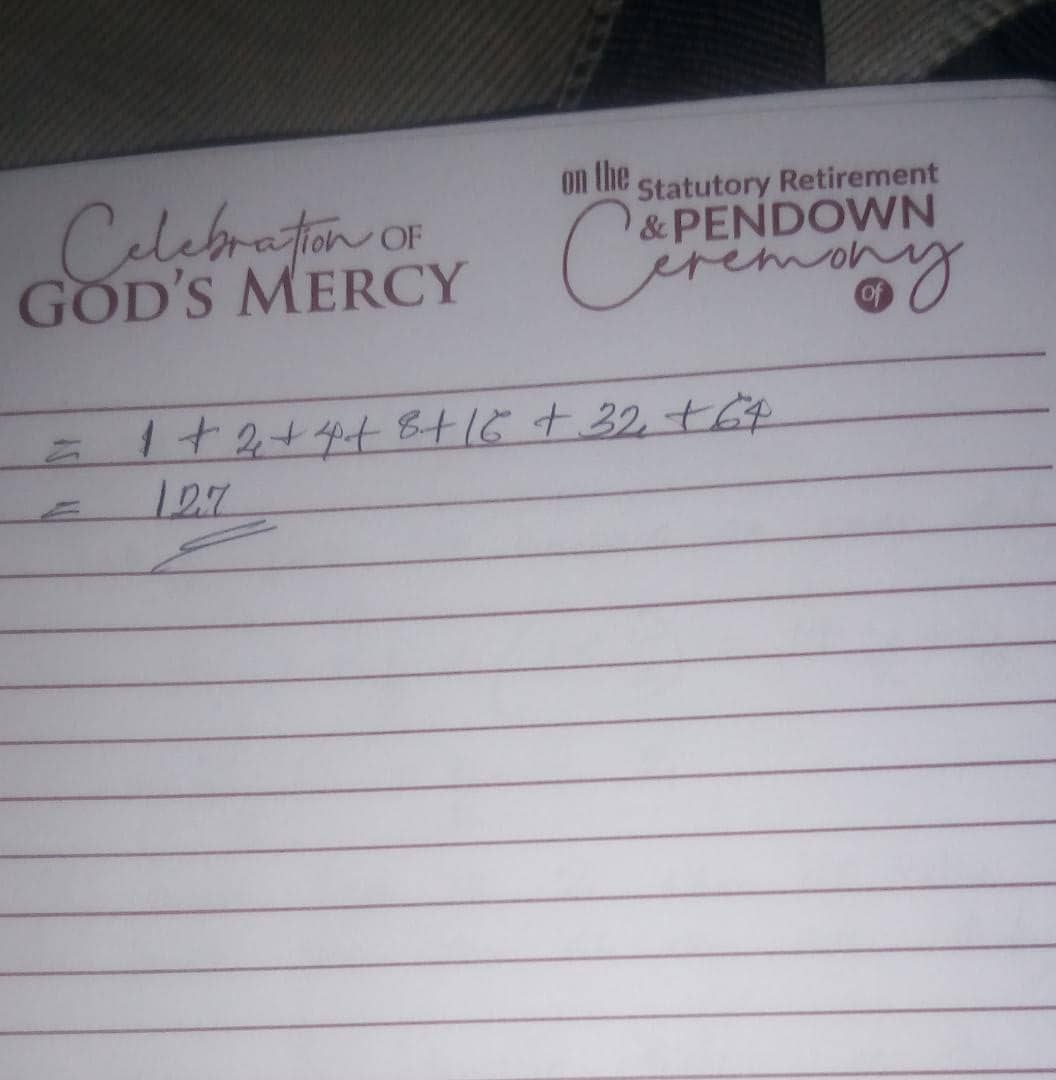 Celebration OF
GOD'S MERCY
on the Statutory Retirement
& PENDOWN
Ceremony
Of
= 1 + 2 + 4 + 8 + 16 + 32 + 64
= 127